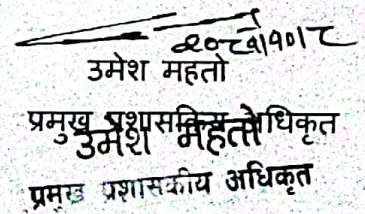 २०८१।१०।८
उमेश महतो
प्रमुख प्रशासकिय अधिकृत
उमेश महतो
प्रमुख प्रशासकीय अधिकृत